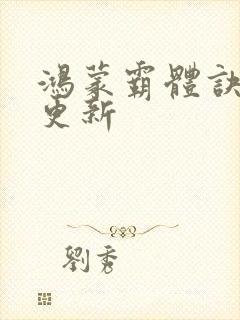 鴻蒙霸體訣
更新
劉秀